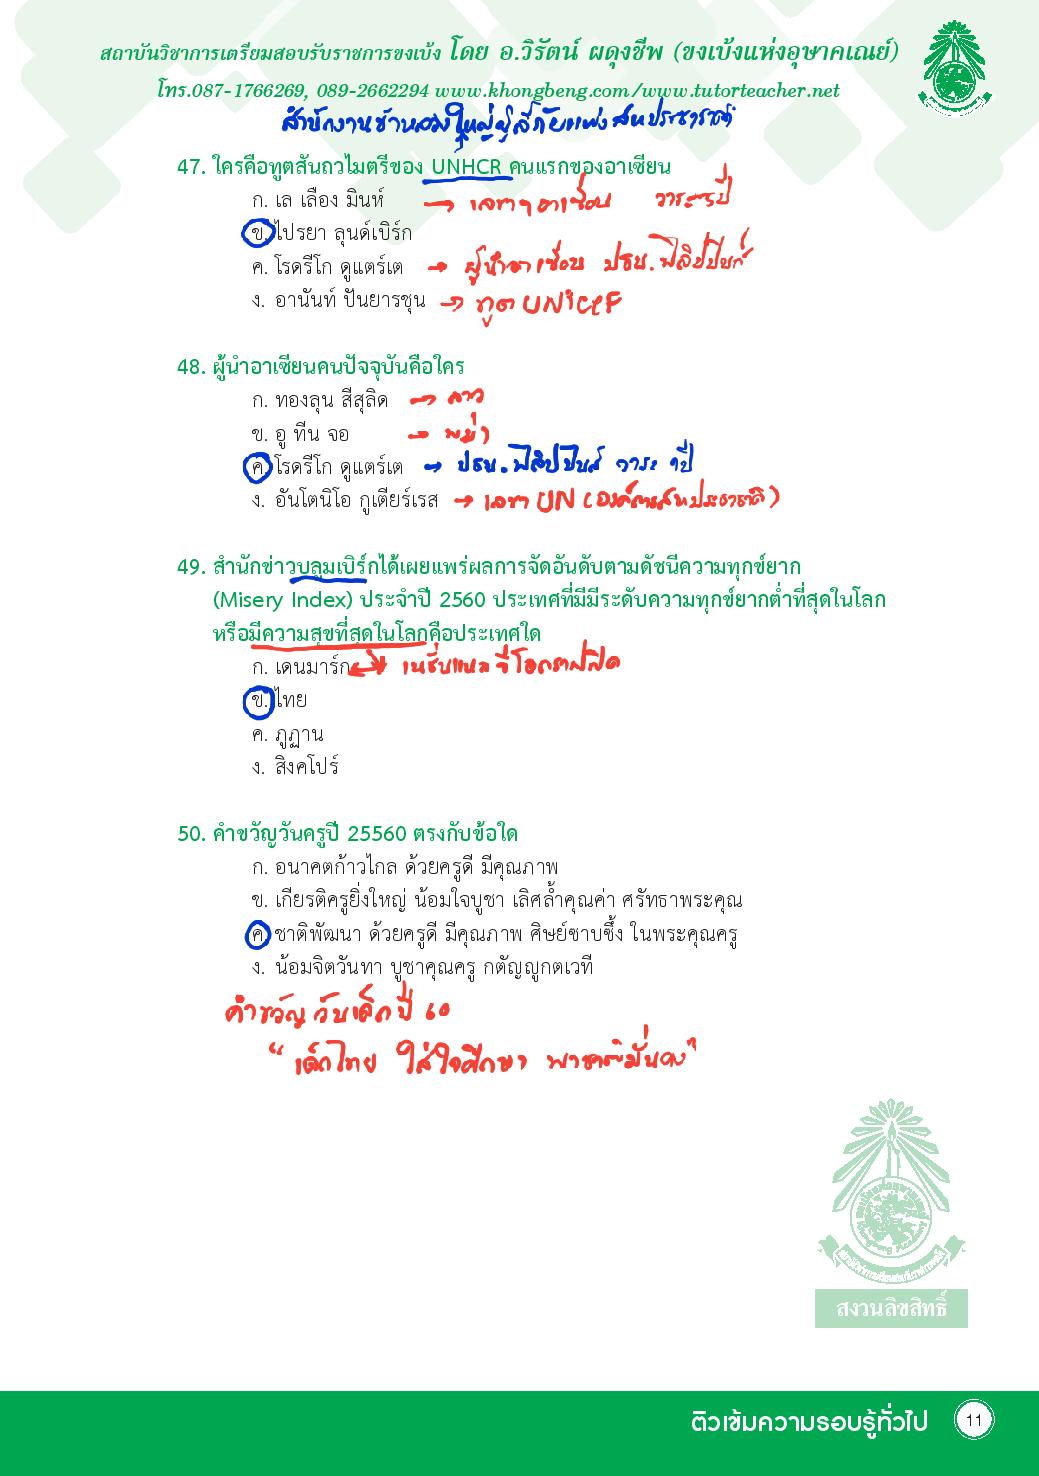 สถาบันวิชาการเตรียมสอบรับราชการขงเบ้ง โดย อ.วิรัตน์ ผดุงชีพ (ขงเบ้งแห่งอุษาคเณย์)
โทร.087-1766269, 089-2662294 www.khongbeng.com/www.tutorteacher.net
สำนักงานข้าหลวงใหญ่ผู้ลี้ภัยแห่งสหประชาชาติ
47. ใครคือทูตสันถวไมตรีของ UNHCR คนแรกของอาเซียน
ก. เล เลือง มินห์ → เลขาฯ อาเซียน วาระ 5 ปี
ข. ไปรยา ลุนด์เบิร์ก
ค. โรดรีโก ดูแตร์เต → ผู้นำอาเซียน ปธน.ฟิลิปปินส์
ง. อานันท์ ปันยารชุน → ทูต UNICEF
48. ผู้นำอาเซียนคนปัจจุบันคือใคร
ก. ทองลุน สีสุลิด → ลาว
ข. อู ทีน จอ → พม่า
ค. โรดรีโก ดูแตร์เต → ปธน.ฟิลิปปินส์ วาระ 1 ปี
ง. อันโตนิโอ กูเตียร์เรส → เลขา UN (องค์การสหประชาชาติ)
49. สำนักข่าวบลูมเบิร์กได้เผยแพร่ผลการจัดอันดับตามดัชนีความทุกข์ยาก
(Misery Index) ประจำปี 2560 ประเทศที่มีมีระดับความทุกข์ยากต่ำที่สุดในโลก
หรือมีความสุขที่สุดในโลกคือประเทศใด
ก. เดนมาร์ก
ข. ไทย
ค. ภูฏาน
ง. สิงคโปร์
50. คำขวัญวันครูปี 25560 ตรงกับข้อใด
ก. อนาคตก้าวไกล ด้วยครูดี มีคุณภาพ
ข. เกียรติครูยิ่งใหญ่ น้อมใจบูชา เลิศล้ำคุณค่า ศรัทธาพระคุณ
ค. ชาติพัฒนา ด้วยครูดี มีคุณภาพ ศิษย์ซาบซึ้ง ในพระคุณครู
ง. น้อมจิตวันทา บูชาคุณครู กตัญญูกตเวที
คำขวัญ วันเด็กปี 60
“เด็กไทย ใส่ใจศึกษา พาชาติมั่นคง”
สงวนลิขสิทธิ์
ติวเข้มความรอบรู้ทั่วไป 11